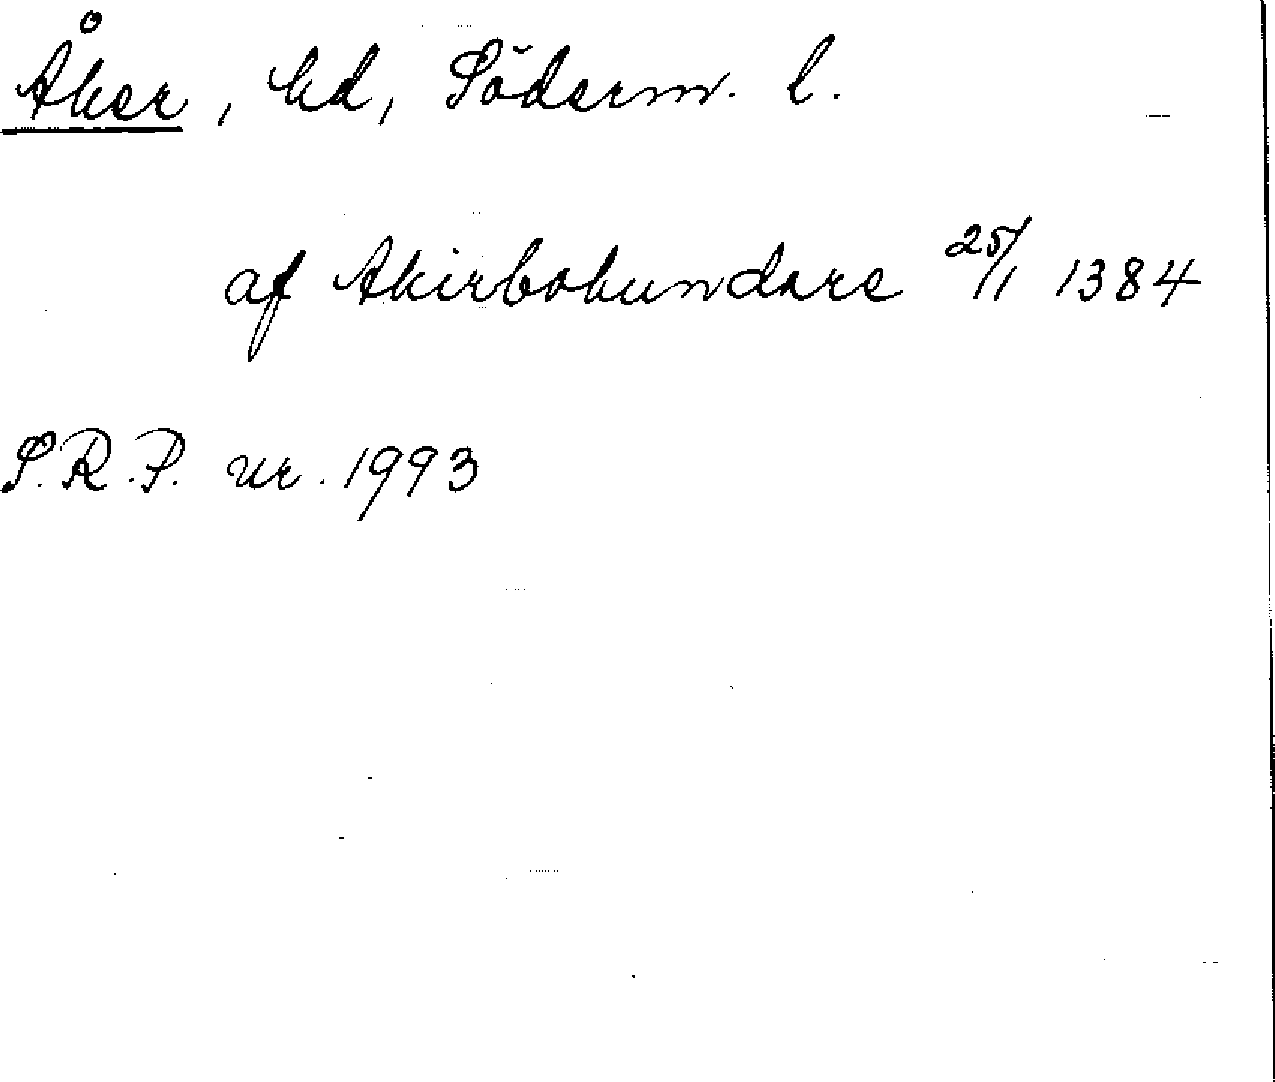 Åker, hd, Söderm. l.
af Akirbohundare 25/1 1384
S.R.P. nr. 1993